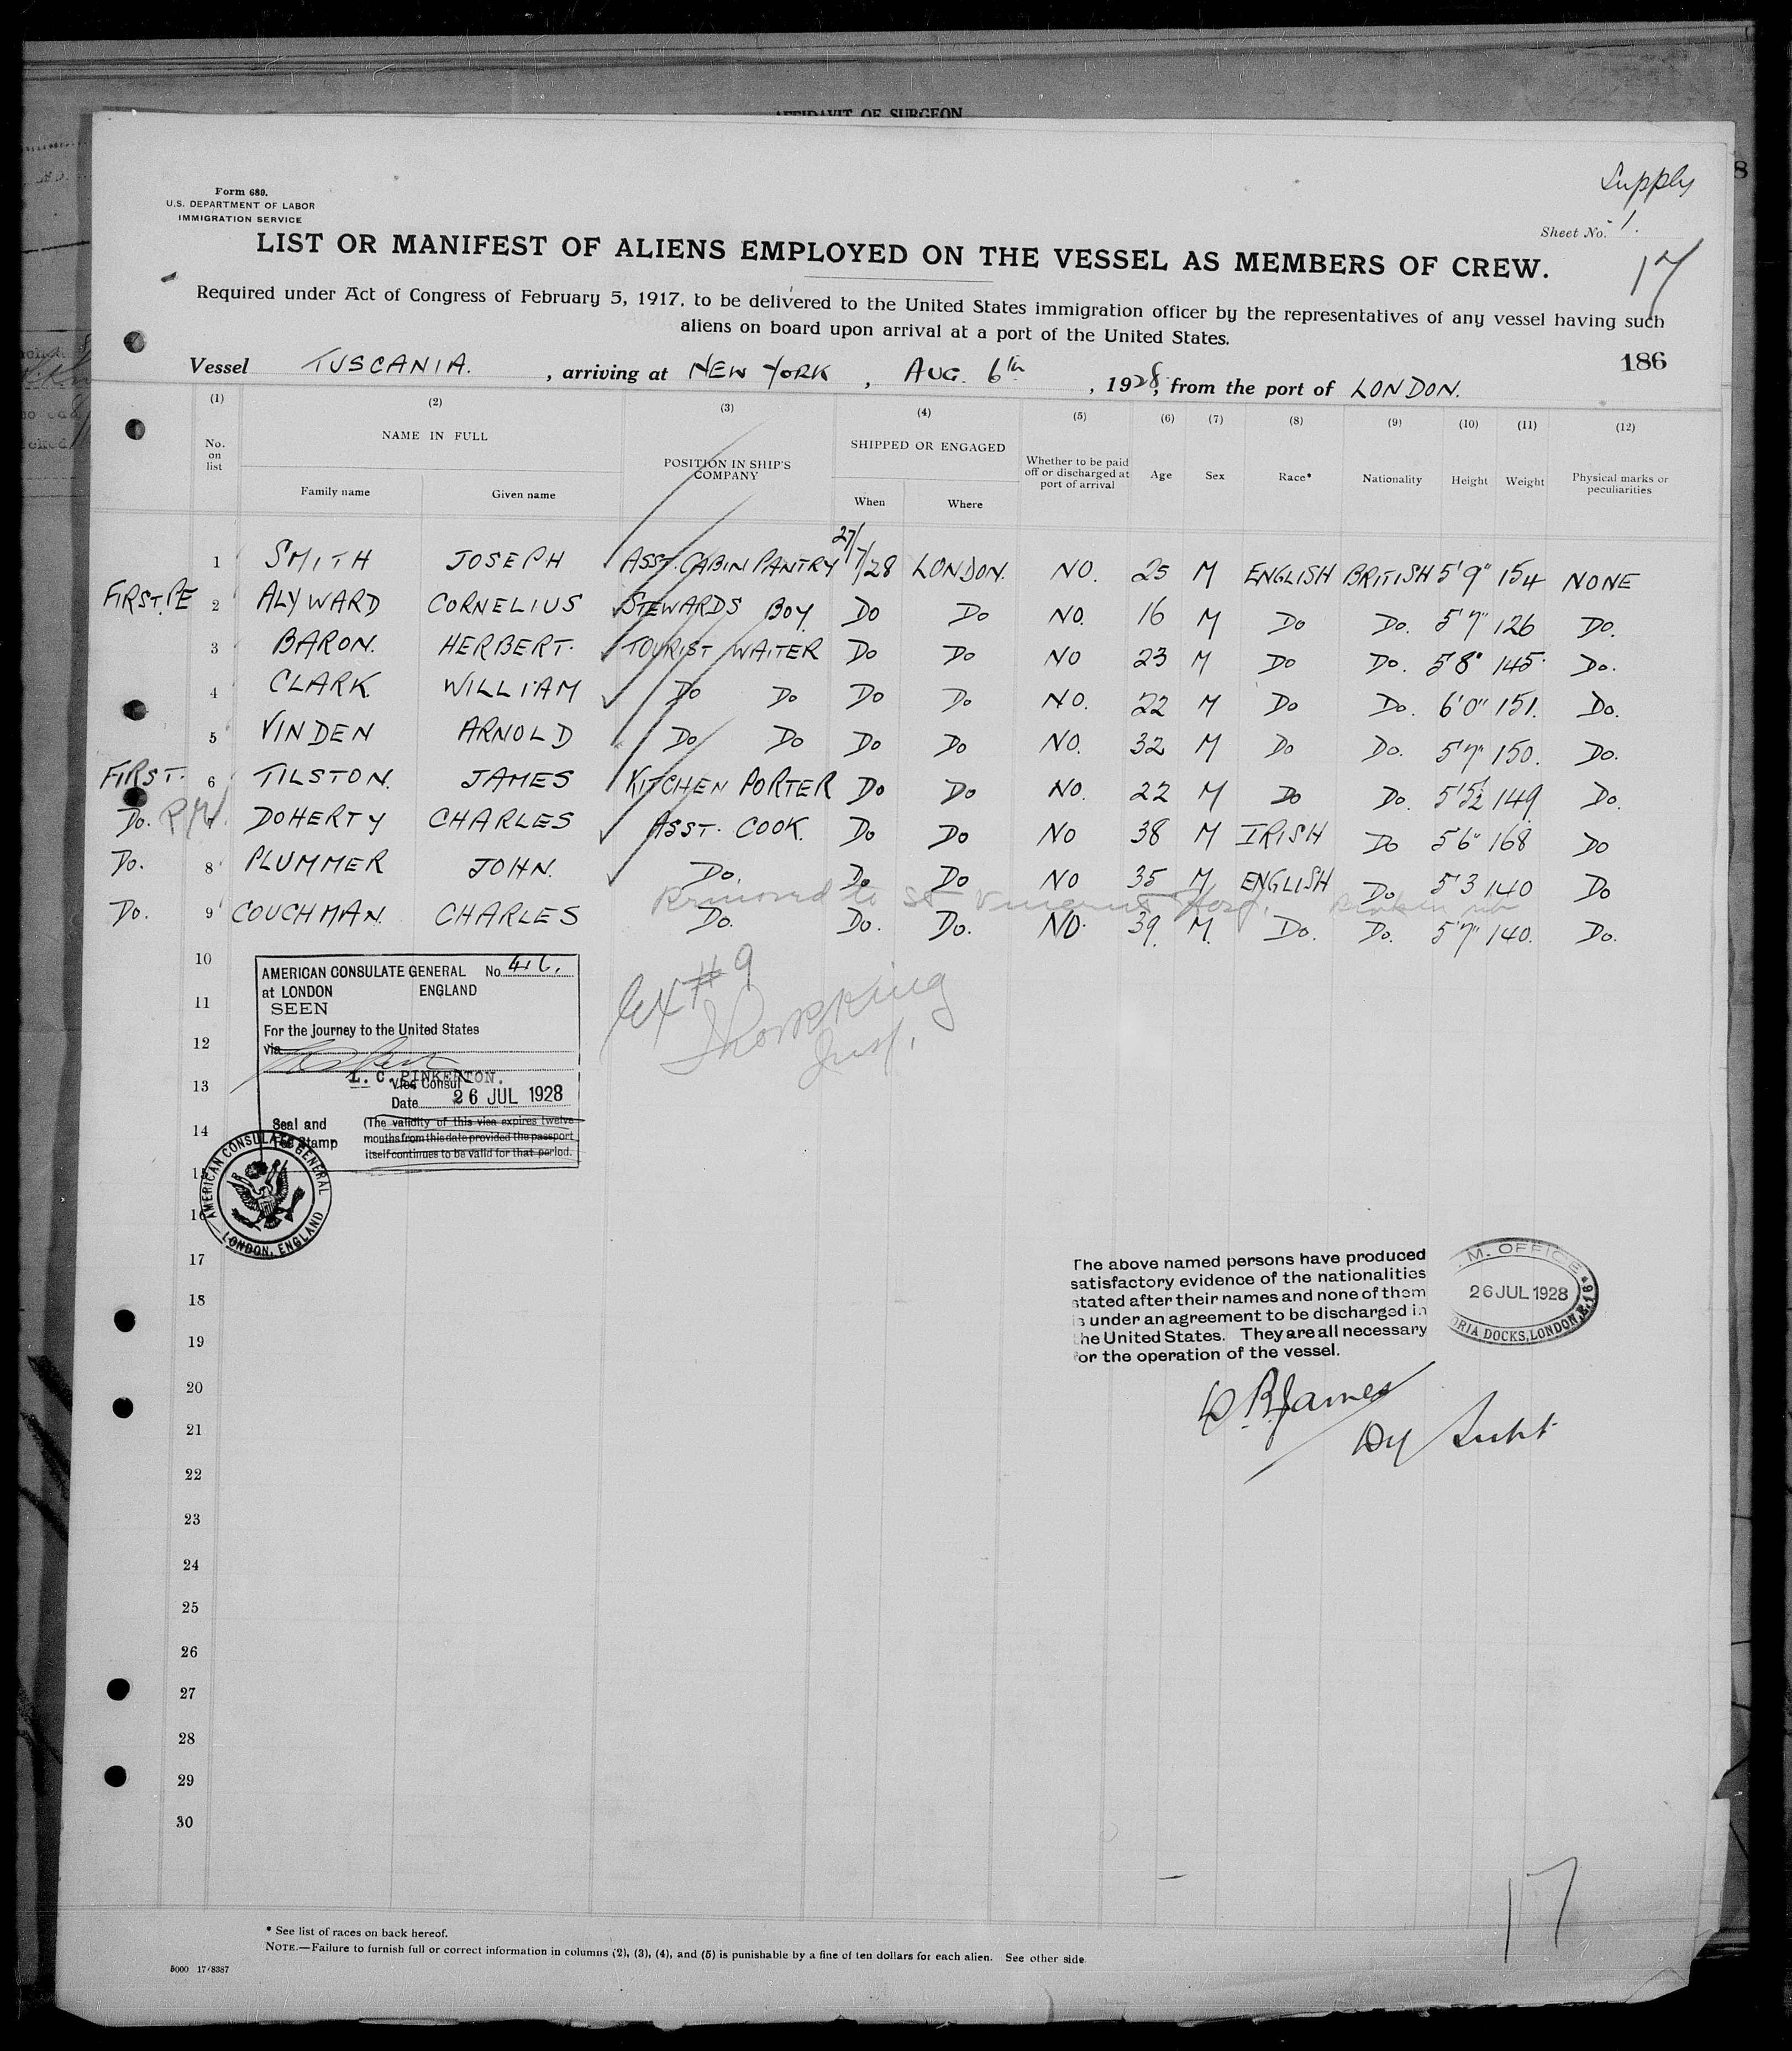 AFFIDAVIT OF SURGEON
Supply
Form 680.
U.S. DEPARTMENT OF LABOR
IMMIGRATION SERVICE
Sheet No. 1.
LIST OR MANIFEST OF ALIENS EMPLOYED ON THE VESSEL AS MEMBERS OF CREW.
17
Required under Act of Congress of February 5, 1917, to be delivered to the United States immigration officer by the representatives of any vessel having such
aliens on board upon arrival at a port of the United States.
186
Vessel TUSCANIA. , arriving at NEW YORK , AUG. 6th , 1928, from the port of LONDON.
(1) (2) (3) (4) (5) (6) (7) (8) (9) (10) (11) (12)
No. on list NAME IN FULL POSITION IN SHIP'S COMPANY SHIPPED OR ENGAGED Whether to be paid off or discharged at port of arrival Age Sex Race* Nationality Height Weight Physical marks or peculiarities
Family name Given name When Where
1 SMITH JOSEPH ASST. CABIN PANTRY 27/7/28 LONDON. NO. 25 M ENGLISH BRITISH 5'9" 154 NONE
FIRST. PE 2 ALYWARD CORNELIUS STEWARDS BOY DO DO NO. 16 M DO DO. 5'7" 126 DO.
3 BARON. HERBERT. TOURIST WAITER DO DO NO 23 M DO DO. 5'8" 145. DO.
4 CLARK. WILLIAM DO DO DO DO NO. 22 M DO DO. 6'0" 151. DO.
5 VINDEN ARNOLD DO DO DO DO NO. 32 M DO DO. 5'7" 150. DO.
FIRST. 6 TILSTON. JAMES KITCHEN PORTER DO DO NO. 22 M DO DO. 5'5½ 149 DO.
DO. DOHERTY CHARLES ASST. COOK. DO DO NO 38 M IRISH DO 5'6" 168 DO
DO. 8 PLUMMER JOHN. DO. DO DO NO 35 M ENGLISH DO 5'3 140 DO
Removed to St Vincents Hosp.
DO. 9 COUCHMAN. CHARLES DO. DO. DO. NO. 39. M. DO. DO. 5'7" 140. DO.
10
AMERICAN CONSULATE GENERAL No.
at LONDON ENGLAND
11
SEEN
For the journey to the United States
12
via
L. C. PINKERTON.
Vice Consul
13
Date 26 JUL 1928
Seal and Fee Stamp
(The validity of this visa expires twelve
months from this date provided the passport
itself continues to be valid for that period.
14
#9
15
AMERICAN CONSULATE GENERAL
LONDON, ENGLAND
16
17
The above named persons have produced
satisfactory evidence of the nationalities
stated after their names and none of them
is under an agreement to be discharged in
the United States. They are all necessary
for the operation of the vessel.
M. OFFICE
26 JUL 1928
ORIA DOCKS, LONDON, E.16
18
19
20
James
21
Dy Supt
22
23
24
25
26
27
28
29
30
17
* See list of races on back hereof.
NOTE.—Failure to furnish full or correct information in columns (2), (3), (4), and (5) is punishable by a fine of ten dollars for each alien. See other side
5000 17/8387